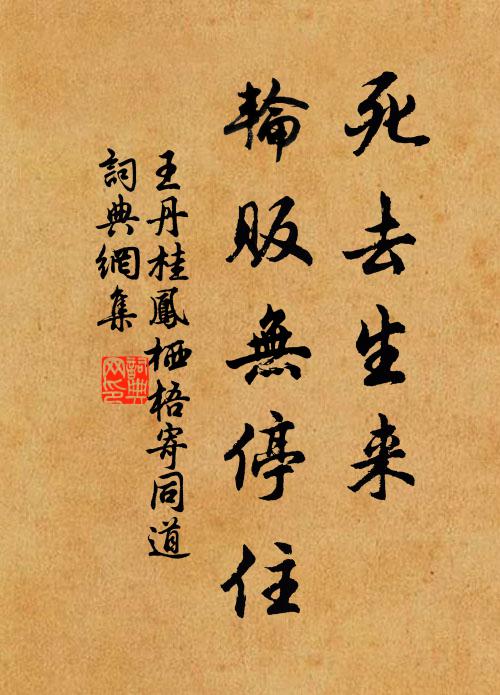 死去生来
輪販無停住
王丹桂鳳栖梧寄同道
詞典網集
詞典网印